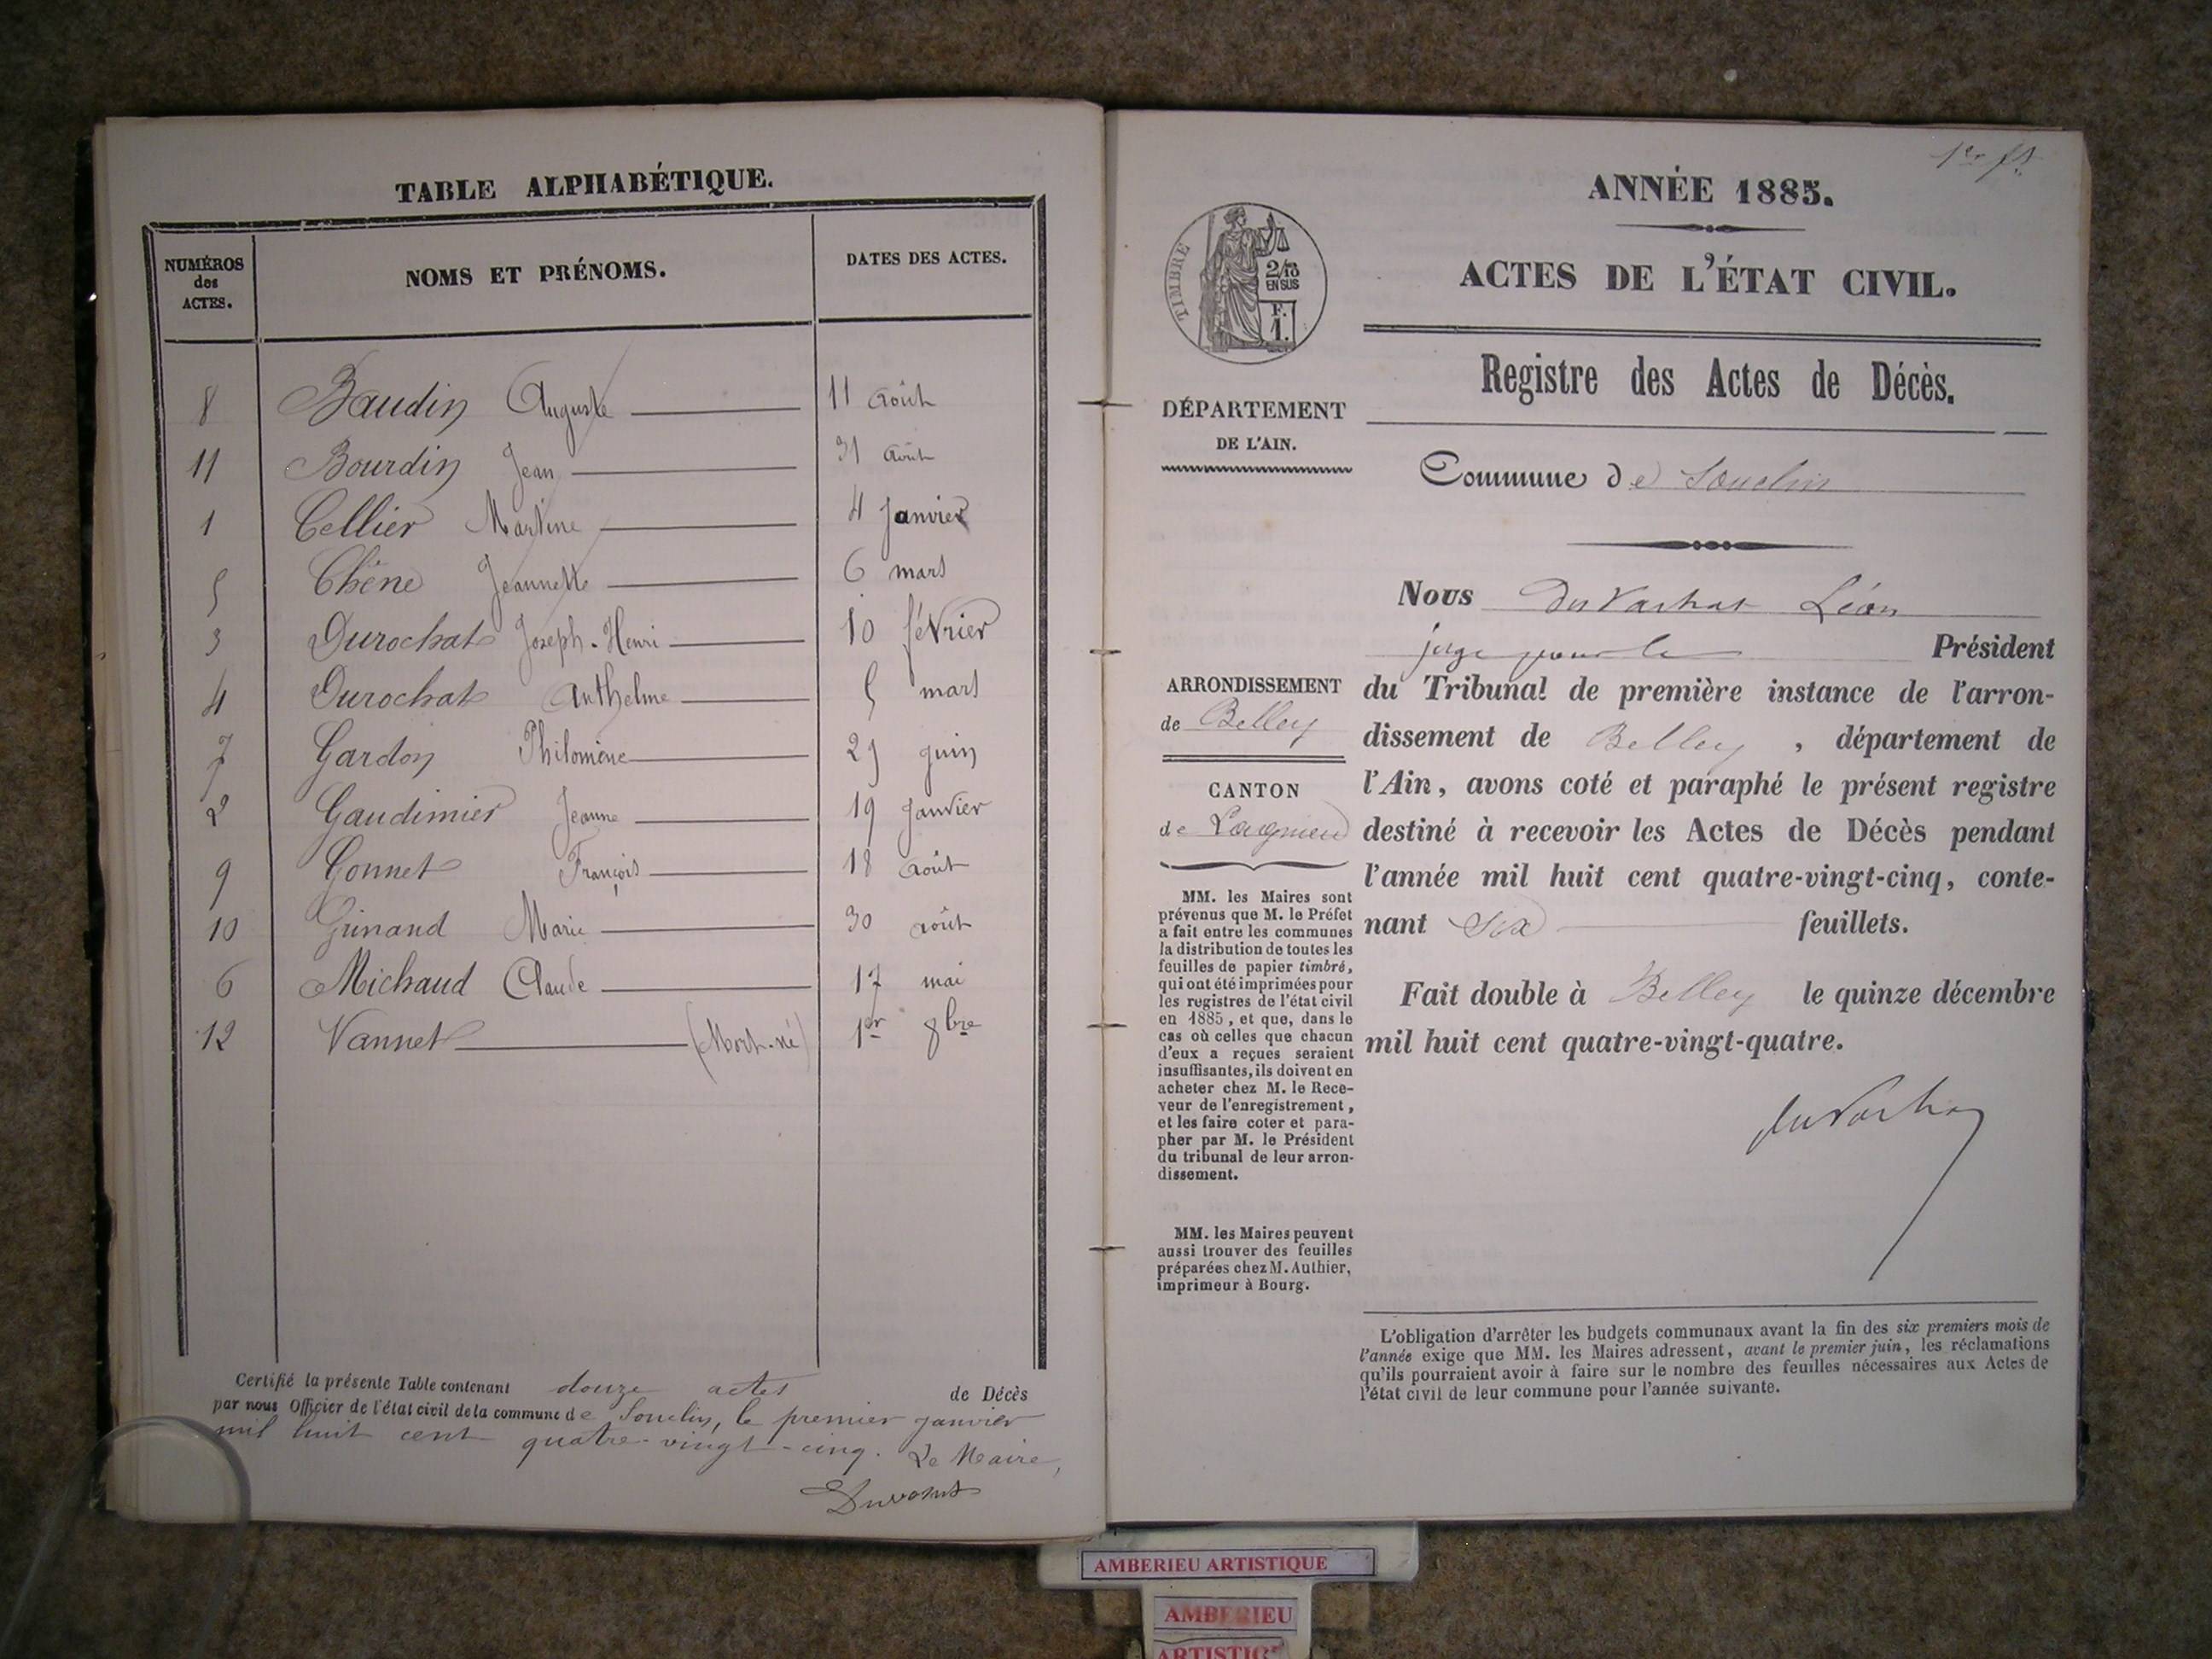 TABLE ALPHABÉTIQUE.
NUMÉROS des ACTES. NOMS ET PRÉNOMS. DATES DES ACTES.
8 Baudin Auguste 11 août
11 Bourdin Jean 31 août
1 Cellier Martine 4 janvier
5 Chêne Jeannette 6 mars
3 Durochat Joseph-Henri 10 février
4 Durochat Anthelme 5 mars
7 Gardon Philomène 29 juin
2 Gaudimier Jeanne 19 janvier
9 Gonnet François 18 août
10 Guinand Marie 30 août
6 Michaud Claude 17 mai
12 Vannet (Mort-né) 1er 8bre
Certifié la présente Table contenant douze actes de Décès
par nous Officier de l'état civil de la commune de Souclin, le premier janvier
mil huit cent quatre-vingt-cinq. Le Maire,
1er ft.
ANNÉE 1885.
ACTES DE L'ÉTAT CIVIL.
Registre des Actes de Décès.
Commune de Souclin
TIMBRE
2/10
EN SUS
F.
1.
DÉPARTEMENT
DE L'AIN.
ARRONDISSEMENT
de Belley
CANTON
de Lagnieu
MM. les Maires sont
prévenus que M. le Préfet
a fait entre les communes
la distribution de toutes les
feuilles de papier timbré,
qui ont été imprimées pour
les registres de l'état civil
en 1885, et que, dans le
cas où celles que chacun
d'eux a reçues seraient
insuffisantes, ils doivent en
acheter chez M. le Rece-
veur de l'enregistrement,
et les faire coter et para-
pher par M. le Président
du tribunal de leur arron-
dissement.
MM. les Maires peuvent
aussi trouver des feuilles
préparées chez M. Authier,
imprimeur à Bourg.
Nous Du Vachat Léon
juge pour le Président
du Tribunal de première instance de l'arron-
dissement de Belley, département de
l'Ain, avons coté et paraphé le présent registre
destiné à recevoir les Actes de Décès pendant
l'année mil huit cent quatre-vingt-cinq, conte-
nant six feuillets.
Fait double à Belley le quinze décembre
mil huit cent quatre-vingt-quatre.
du Vachat
L'obligation d'arrêter les budgets communaux avant la fin des six premiers mois de
l'année exige que MM. les Maires adressent, avant le premier juin, les réclamations
qu'ils pourraient avoir à faire sur le nombre des feuilles nécessaires aux Actes de
l'état civil de leur commune pour l'année suivante.
AMBERIEU ARTISTIQUE
AMBERIEU
ARTISTIQ